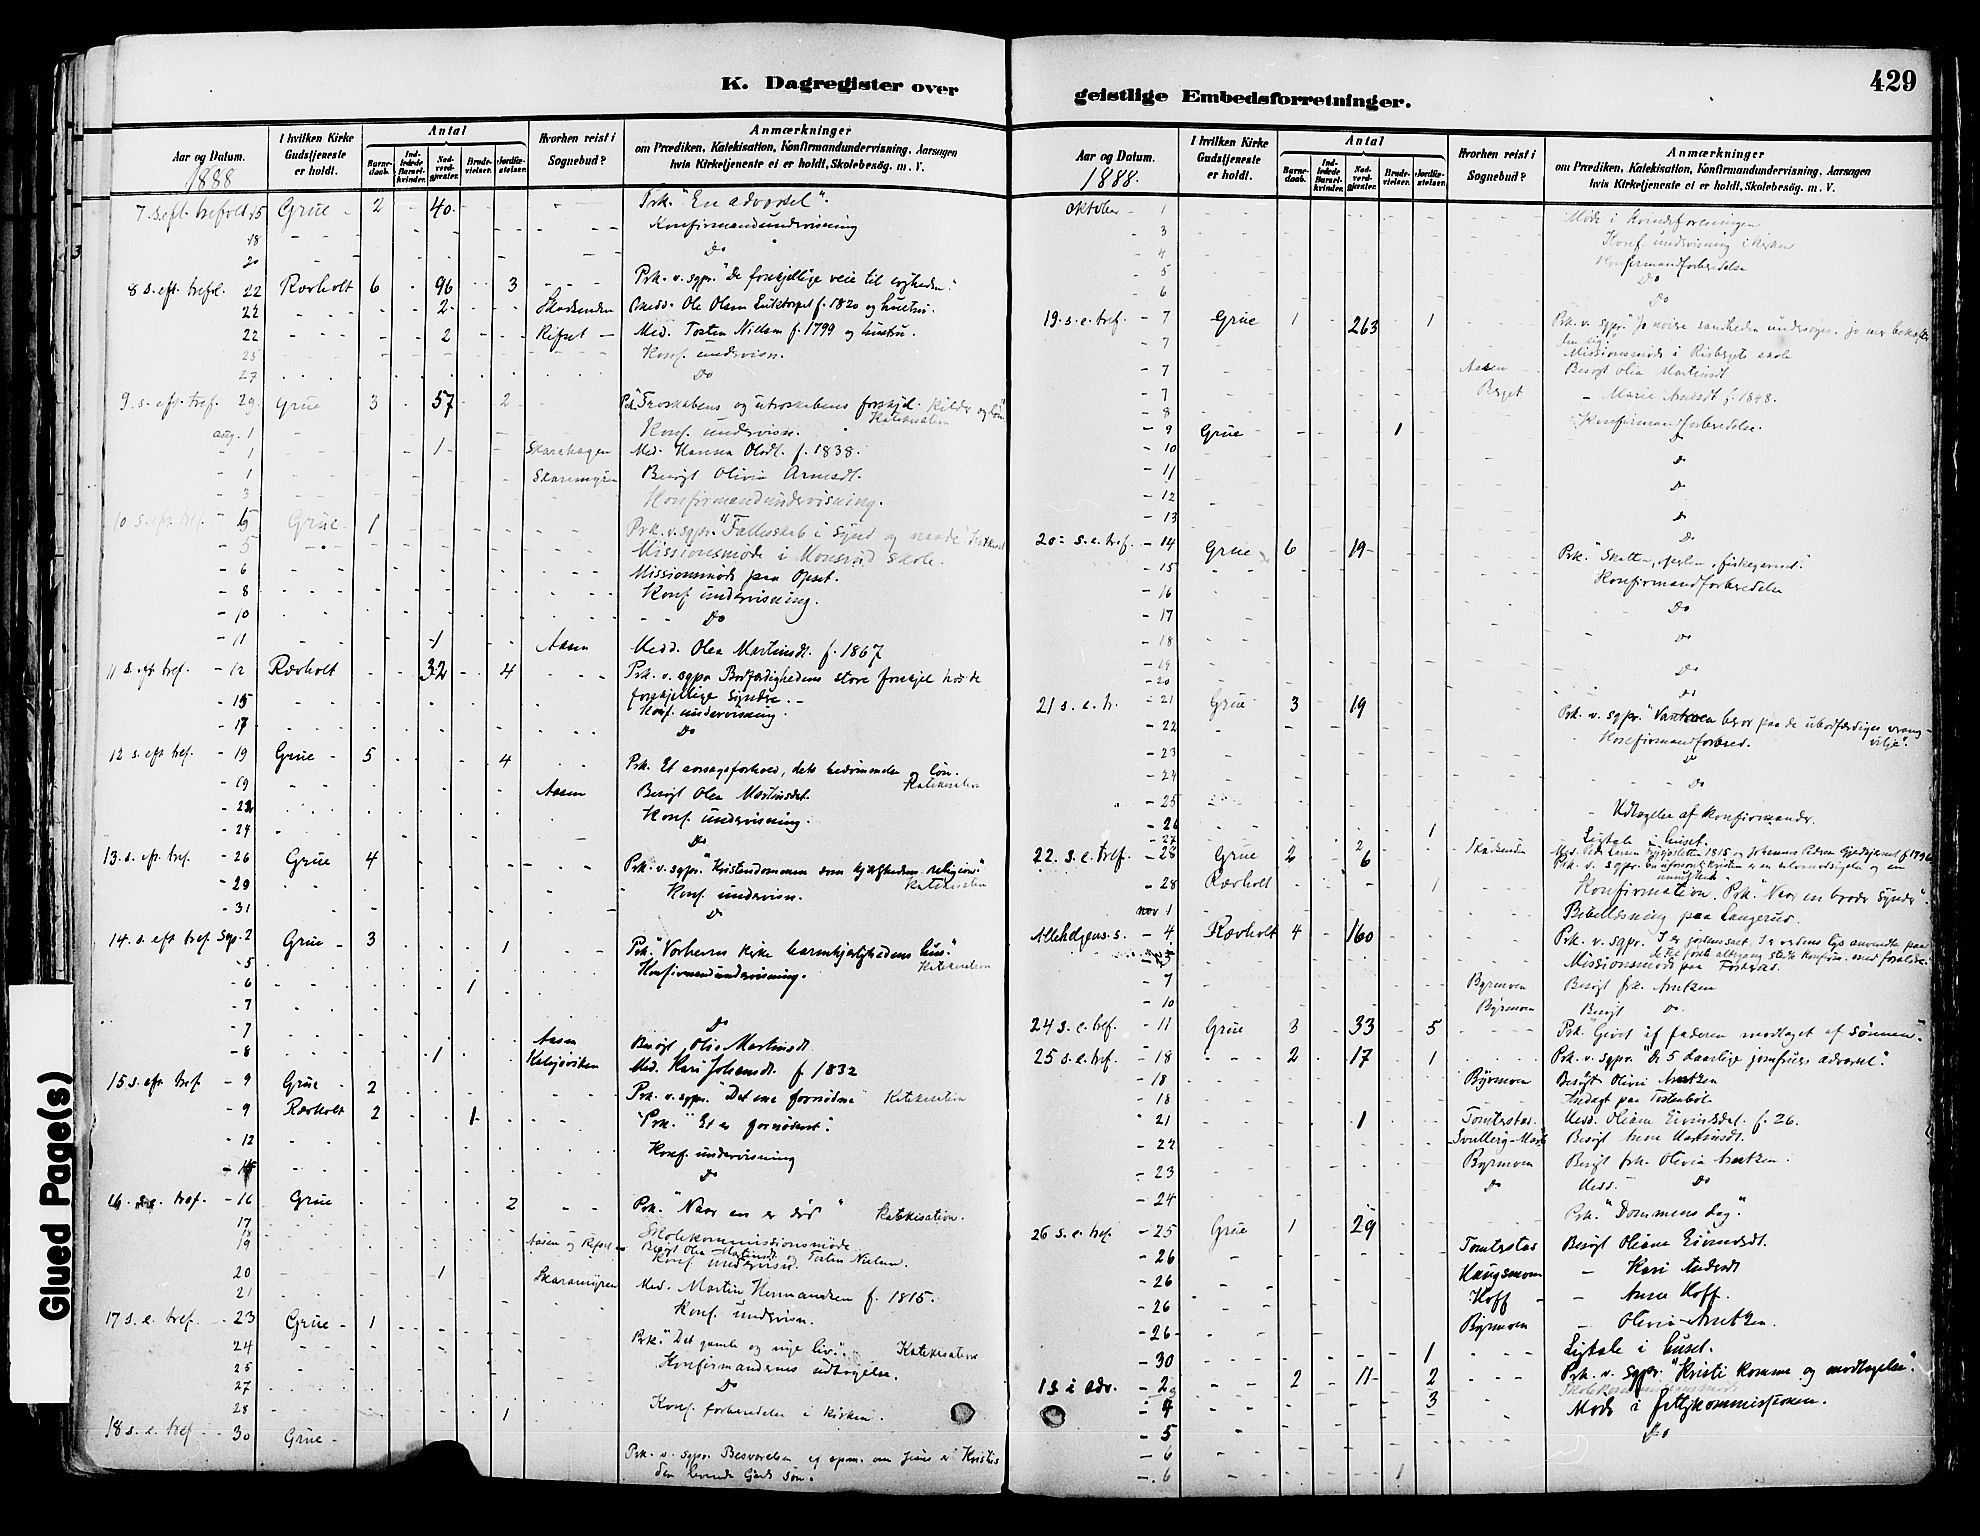 K. Dagregister over
Aar og Datum.
1888
I hvilken Kirke Gudstjeneste er holdt.
Antal
Barnedaab.
Indledede Barselkvinder.
Nadverdgjæster.
Brudevielser.
Jordfæstelser.
Hvorhen reist i Sognebud?
Anmærkninger
om Prædiken, Katekisation, Konfirmandundervisning, Aarsagen
hvis Kirketjeneste ei er holdt, Skolebesøg. m. V.
7. s. eft. trefold. 15 Grue 2 40 Prk. "En advarsel".
18 Konfirmandundervisning
20 Do
8 s. eft. trefol. 22 Rævholt 6 96 3 Prk. v. sgpr. "De forskjellige veie til
22 2 Skadsenden Ole Olsen f. 1820 og hustru.
22 2 Rifset Med. Tosten Nielsen f. 1799 og hustru.
25 Konf. undervisn.
27 Do
9. s. eft. tref. 29 Grue 3 57 2 Troskabens og utroskabens forskjel. Kilde og løn
Katekisation
aug. 1 Konf. undervisn.
- 1 1 Skarahagen Med. Hanna Olsdt. f. 1838.
- 1 Skaramyren Besøgt Olivia Arnesdt.
- 3 Konfirmandundervisning.
10 s. eft. tref. - 5 Grue 1 Prk. v. sgpr. "Fællesskab i synd og naade"
- 5 Missionsmøde i Monsrud skole.
- 6 Missionsmøde paa Opset.
- 8 Konf. undervisning.
- 10 Do
- 11 1 Aasen Medd. Olea Martinsdt. f. 1867
11 s. eft tref. - 12 Rævholt 32 4 Prk. v. sgpr Bodfærdighedens store forskjel hos de
forskjellige syndere. -
- 15 Konf. undervisning.
- 17 Do
12 s. eft tref. - 19 Grue 5 4 Prk. Et dets bedømmelse løn.
Katekisation
- 19 Aasen Besøgt Olea Martinsdt.
- 22 Konf. undervisning.
- 24 Do
13. s. eft. tref. - 26 Grue 4 Prk. v. sgpr. "Kristendommen som kjærlighedens religion"
Katekisation
- 29 Konf. undervisn.
- 31 Do
14. s. eft tref. Sep. 2 Grue 3 1 Prk. "Vorherres kirke barmhjertighedens hus".
Katekisation
- 5 Konfirmandundervisning.
- 6 1
- 7 Do
- 7 Aasen Besøgt Olea Martinsdt.
- 8 1 Med. Kari Johansdt. f 1832
15 s. eft tref. - 9 Grue 2 Prk. v. sgpr. "Det ene fornødne Katekisation
- 9 Rævholt 2 1 "Prk." Et er fornødent".
- 12 Konf. undervisning
- 15 Do
16. s. e. tref. - 16 Grue 2 Prk. "Naar en er død" Katekisation.
17
18 Skolekommissionsmøde
19 Aasen og Rifset Besøgt Olea Martinsdt og Tosten Nielsen.
Konf undervisn.
20 1 Skaramyren Med. Martin Hermandsen f. 1815.
21 Konf. undervisn.
17 s. e. tref. - 23 Grue 1 Prk. "Det gamle og nye liv". Katekisation
24 Konfirmandernes udtagelse.
25 Do
27
28 1 Konf. forberedelse i kirken.
18 s. e. tref. - 30 Grue Prk. v. sgpr. Besvarelse af spm. om Jesus er Kristus
den levende Guds søn.
geistlige Embedsforretninger.
429
Aar og Datum.
1888.
I hvilken Kirke Gudstjeneste er holdt.
Antal
Barnedaab.
Indledede Barselkvinder.
Nadverdgjæster.
Brudevielser.
Jordfæstelser.
Hvorhen reist i Sognebud?
Anmærkninger
om Prædiken, Katekisation, Konfirmandundervisning, Aarsagen
hvis Kirketjeneste ei er holdt, Skolebesøg. m. V.
Oktober - 1 Møde i kvindeforeningen
- 3 Konf undervisning i kirken
- 4 Konfirmandforberedelse
- 5 Do
- 6 Do
19. s. e. tref. - 7 Grue 1 263 1 Prk. v. sgpr. "Jo nøiere sandheden undersøges, jo mer
den sig."
- 7 Missionsmøde i Risberget skole
- 7 Aasen Besøgt Olea Martinsdt
- 7 Berget - Marie f. 1848.
- 8 Konfirmandforberedelse.
- 9 Grue 1 Do
- 10 Do
- 11 Do
- 12 Do
- 13 Do
20 s. e. tref. - 14 Grue 6 19 Prk. "Skatten, perlen, fiskegarnet."
- 15 Konfirmandforberedelse
- 16 Do
- 17 Do
- 18 Do
- 19 Do
- 20
21 s. e. tr. - 21 Grue 3 19 Prk. v. sgpr. "Vantroen beror paa de ubodfærdiges vrang-
vilje".
- 22 Konfirmandforbered.
- 23 Do
- 24 Do
- 25 Udtagelse af konfirmander.
- 26 1 Ligtale i huset.
- 27 2 Skadsenden
22. s. e. tref. - 28 Grue 2 6 Prk. v. sgpr.
- 28 Rævholt 1 Konfirmation. Prk. "Naar en broder synder".
nov 1 Bibellæsning paa Langerud.
Allehelgens s. - 4 Rævholt 4 160 Prk. v. sgpr. I er jordens salt. I er verdens lys anvendte paa
Missionsmøde paa
- 7 Byrmoen Besøgt frk. Arntzen
- 10 Byrmoen Besøgt Do
24 s. e. tref. - 11 Grue 3 33 5 Prk. "Givet af faderen modtaget af sønnen".
25 s. e. tref. - 18 2 17 1 Prk. v. sgpr. "De 5 daarlige jomfruers advarsel".
- 18 Byrmoen Besøgt Olivia Arntzen
- 18 Andagt paa
21 1 Tomterstad Medd. Oliane Eivindsdt. f. 26.
- 22 Besøgt Anne Martinsdt.
- 23 Byrmoen Besøgt frk. Olivia Arntzen.
- 24 Do Medd. Do
26 s. e. tref. - 25 Grue 1 29 Prk. "Dommens dag".
- 26 Tomterstad Besøgt Oliane Eivindsdt.
- 26 Haugsmoen - Kari Andersdt
- 26 Hoff - Anne Hoff.
- 26 Byrmoen - Olivia Arntzen.
- 30 1 Ligtale i huset.
1 s i adv. - 2 2 11 2 Prk. v. sgpr. "Kristi komme og modtagelse".
- 4 3 Møde i fattigkommissionen.
- 5 Do
- 6
- 6 1
Glued Page(s)